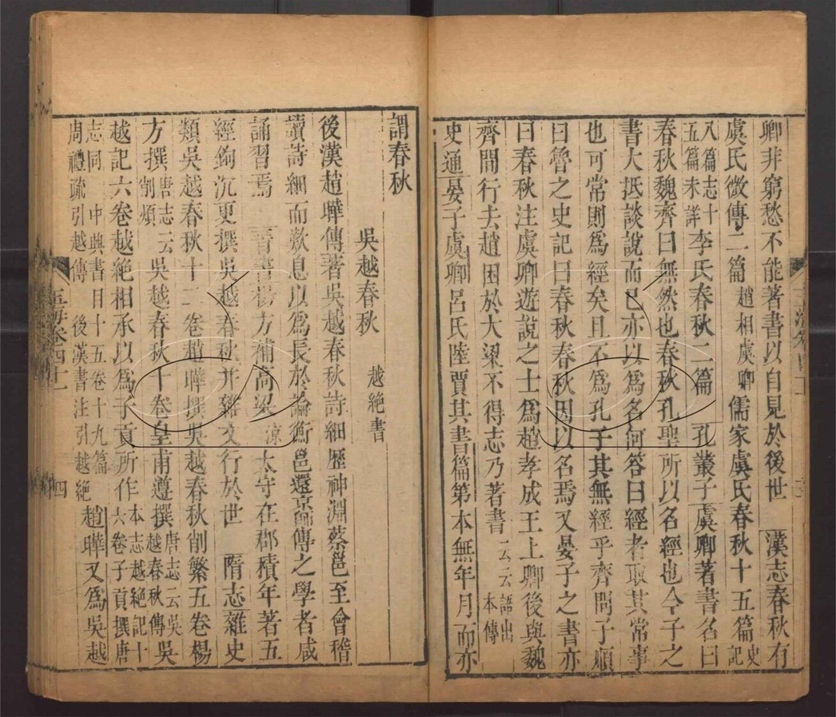 卿非窮愁不能著書以自見於後世 漢志春秋有
虞氏微傳二篇 趙相虞卿 儒家虞氏春秋十五篇 史記
八篇志十五篇未詳 李氏春秋二篇 孔叢子虞卿著書名曰
春秋魏齊曰無然也春秋孔聖所以名經也今子之
書大抵談說而已亦以爲名何答曰經者取其常事
也可常則爲經矣且不爲孔子其無經乎齊問子順
曰魯之史記曰春秋春秋因以名焉又晏子之書亦
曰春秋注虞卿遊說之士爲趙孝成王上卿後與魏
齊間行去趙困於大梁不得志乃著書 云云語出本傳
史通晏子虞卿呂氏陸賈其書篇第本無年月而亦
謂春秋
吳越春秋 越絕書
後漢趙曄傳著吳越春秋詩細歷神淵蔡邕至會稽
讀詩細而歎息以爲長於論衡邕還京師傳之學者咸
誦習焉 晉書楊方補高梁 涼 太守在郡積年著五
經鉤沉更撰吳越春秋并雜文行於世 隋志雜史
類吳越春秋十二卷趙曄撰吳越春秋削繁五卷楊
方撰 唐志云削煩 吳越春秋十卷皇甫遵撰 唐志云吳越春秋傳 吳
越記六卷越絕相承以爲子貢所作 本志越絕記十六卷子貢撰唐
志同 中興書目十五卷十九篇 周禮疏引越傳 後漢書注引越絕 趙曄又爲吳越
玉海卷四十一 四